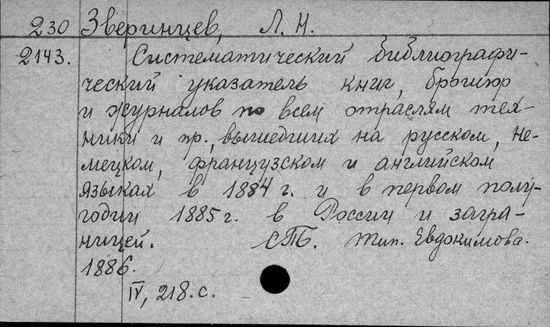 230 Зверинцев, Л. Н.
2143. Систематический библиографи-
ческий указатель книг, брошюр
и журналов по всем отраслям тех-
ники и пр., вышедших на русском, не-
мецком, французском и английском
языках в 1884 г. и в первом полу-
годии 1885 г. в России и загра-
ницей. СПб. Тип. Евдокимова.
1886.
IV, 218. с.